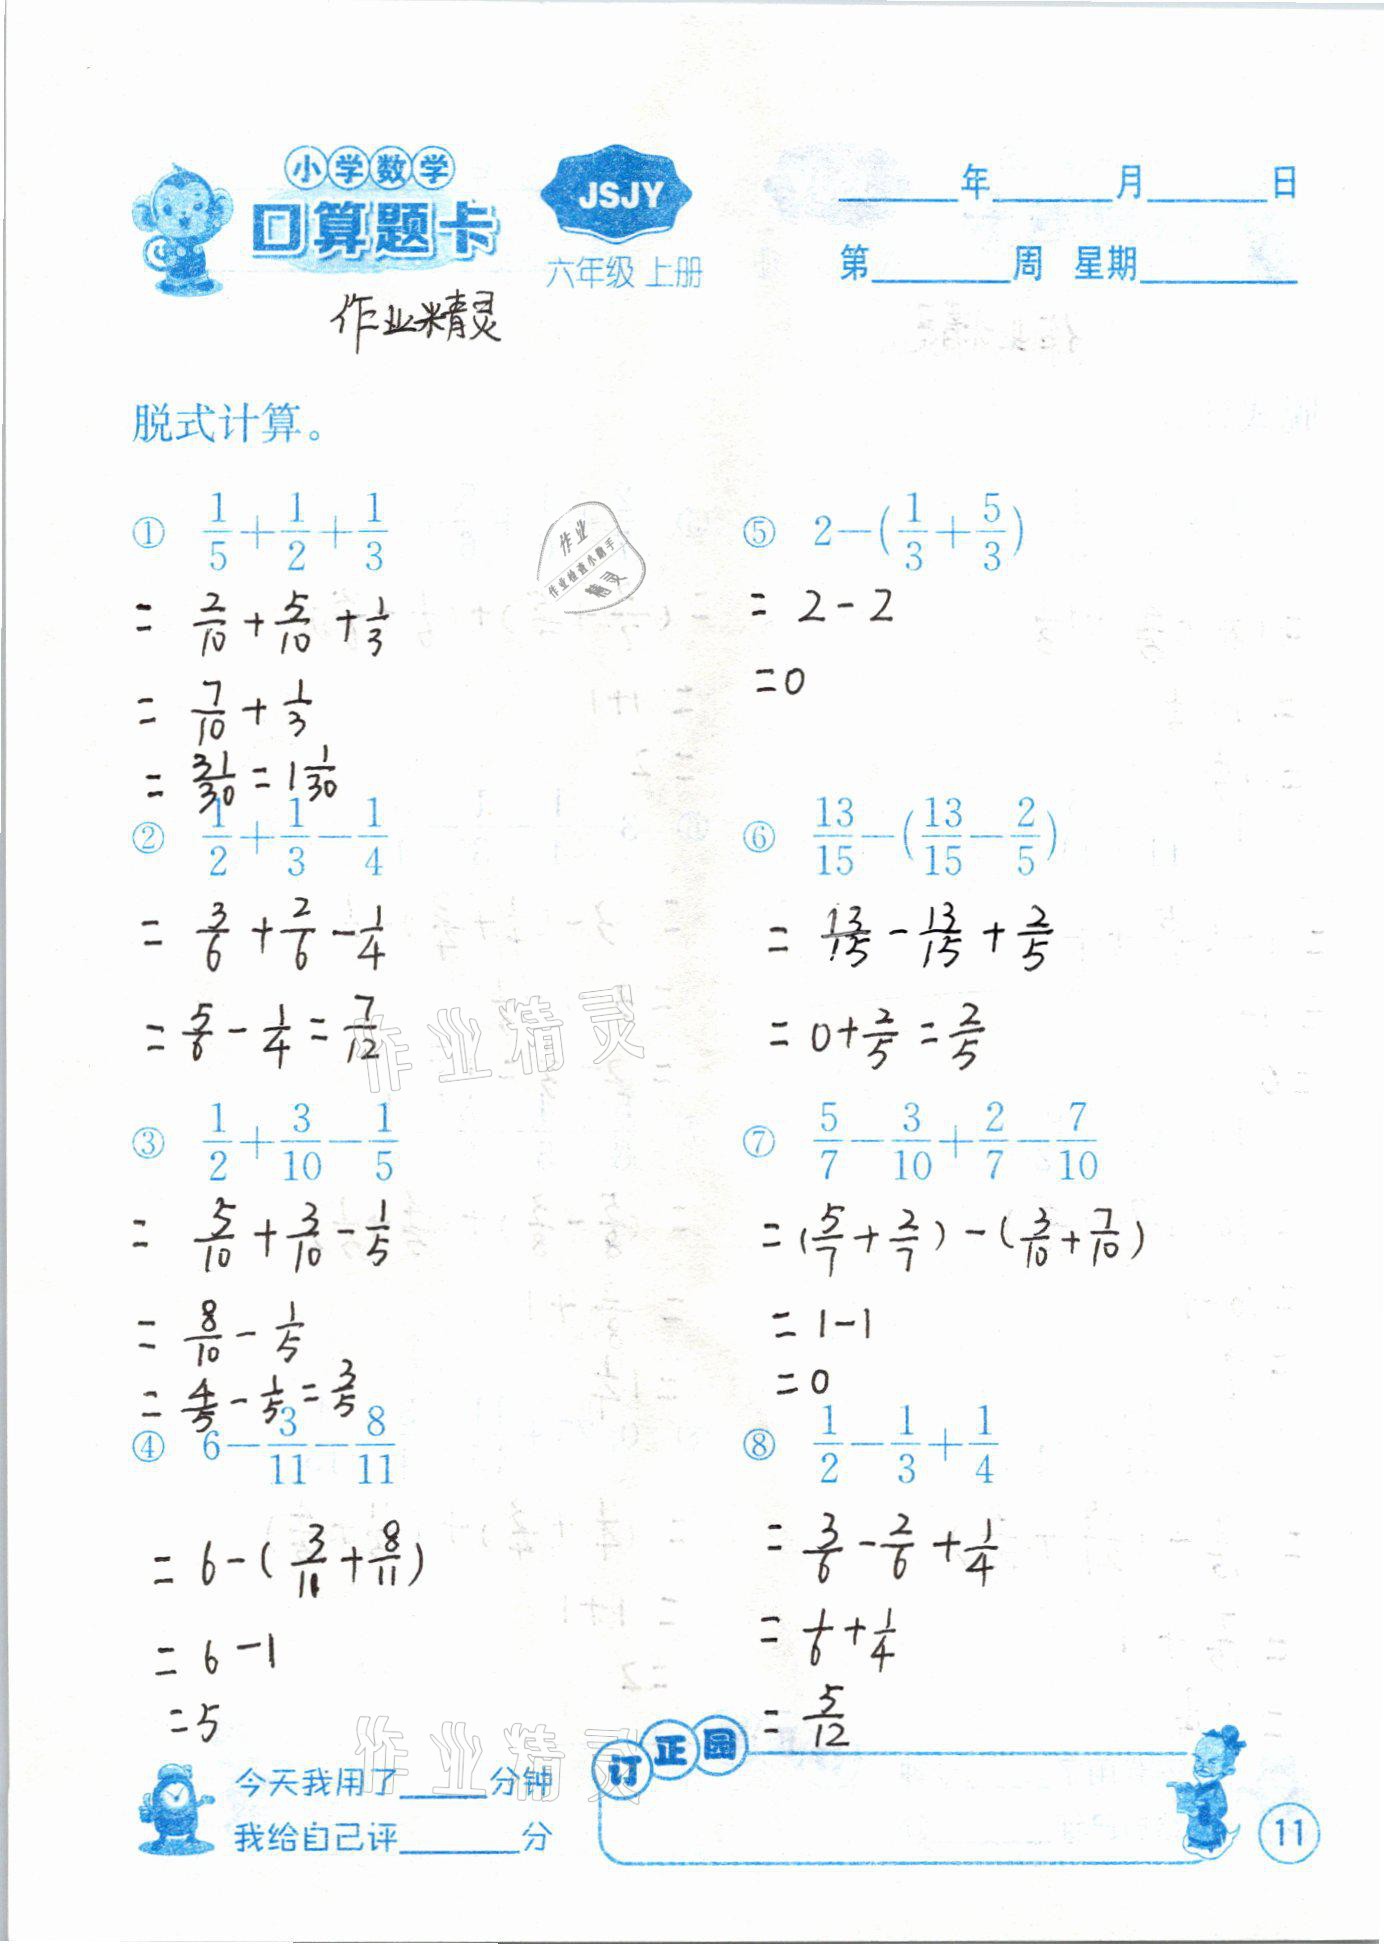 小学数学
口算题卡
JSJY
六年级 上册
____年____月____日
第____周 星期____
作业精灵
脱式计算。
① 1/5+1/2+1/3
= 2/10+5/10+1/3
= 7/10+1/3
= 31/30=1 1/30
② 1/2+1/3-1/4
= 3/6+2/6-1/4
= 5/6-1/4=7/12
③ 1/2+3/10-1/5
= 5/10+3/10-1/5
= 8/10-1/5
= 4/5-1/5=3/5
④ 6-3/11-8/11
= 6-(3/11+8/11)
= 6-1
=5
作业
作业检查小助手
精灵
⑤ 2-(1/3+5/3)
= 2-2
=0
⑥ 13/15-(13/15-2/5)
= 13/15-13/15+2/5
= 0+2/5=2/5
⑦ 5/7-3/10+2/7-7/10
=(5/7+2/7)-(3/10+7/10)
= 1-1
=0
⑧ 1/2-1/3+1/4
= 3/6-2/6+1/4
= 1/6+1/4
= 5/12
作业精灵
作业精灵
今天我用了____分钟
我给自己评____分
订正园
11